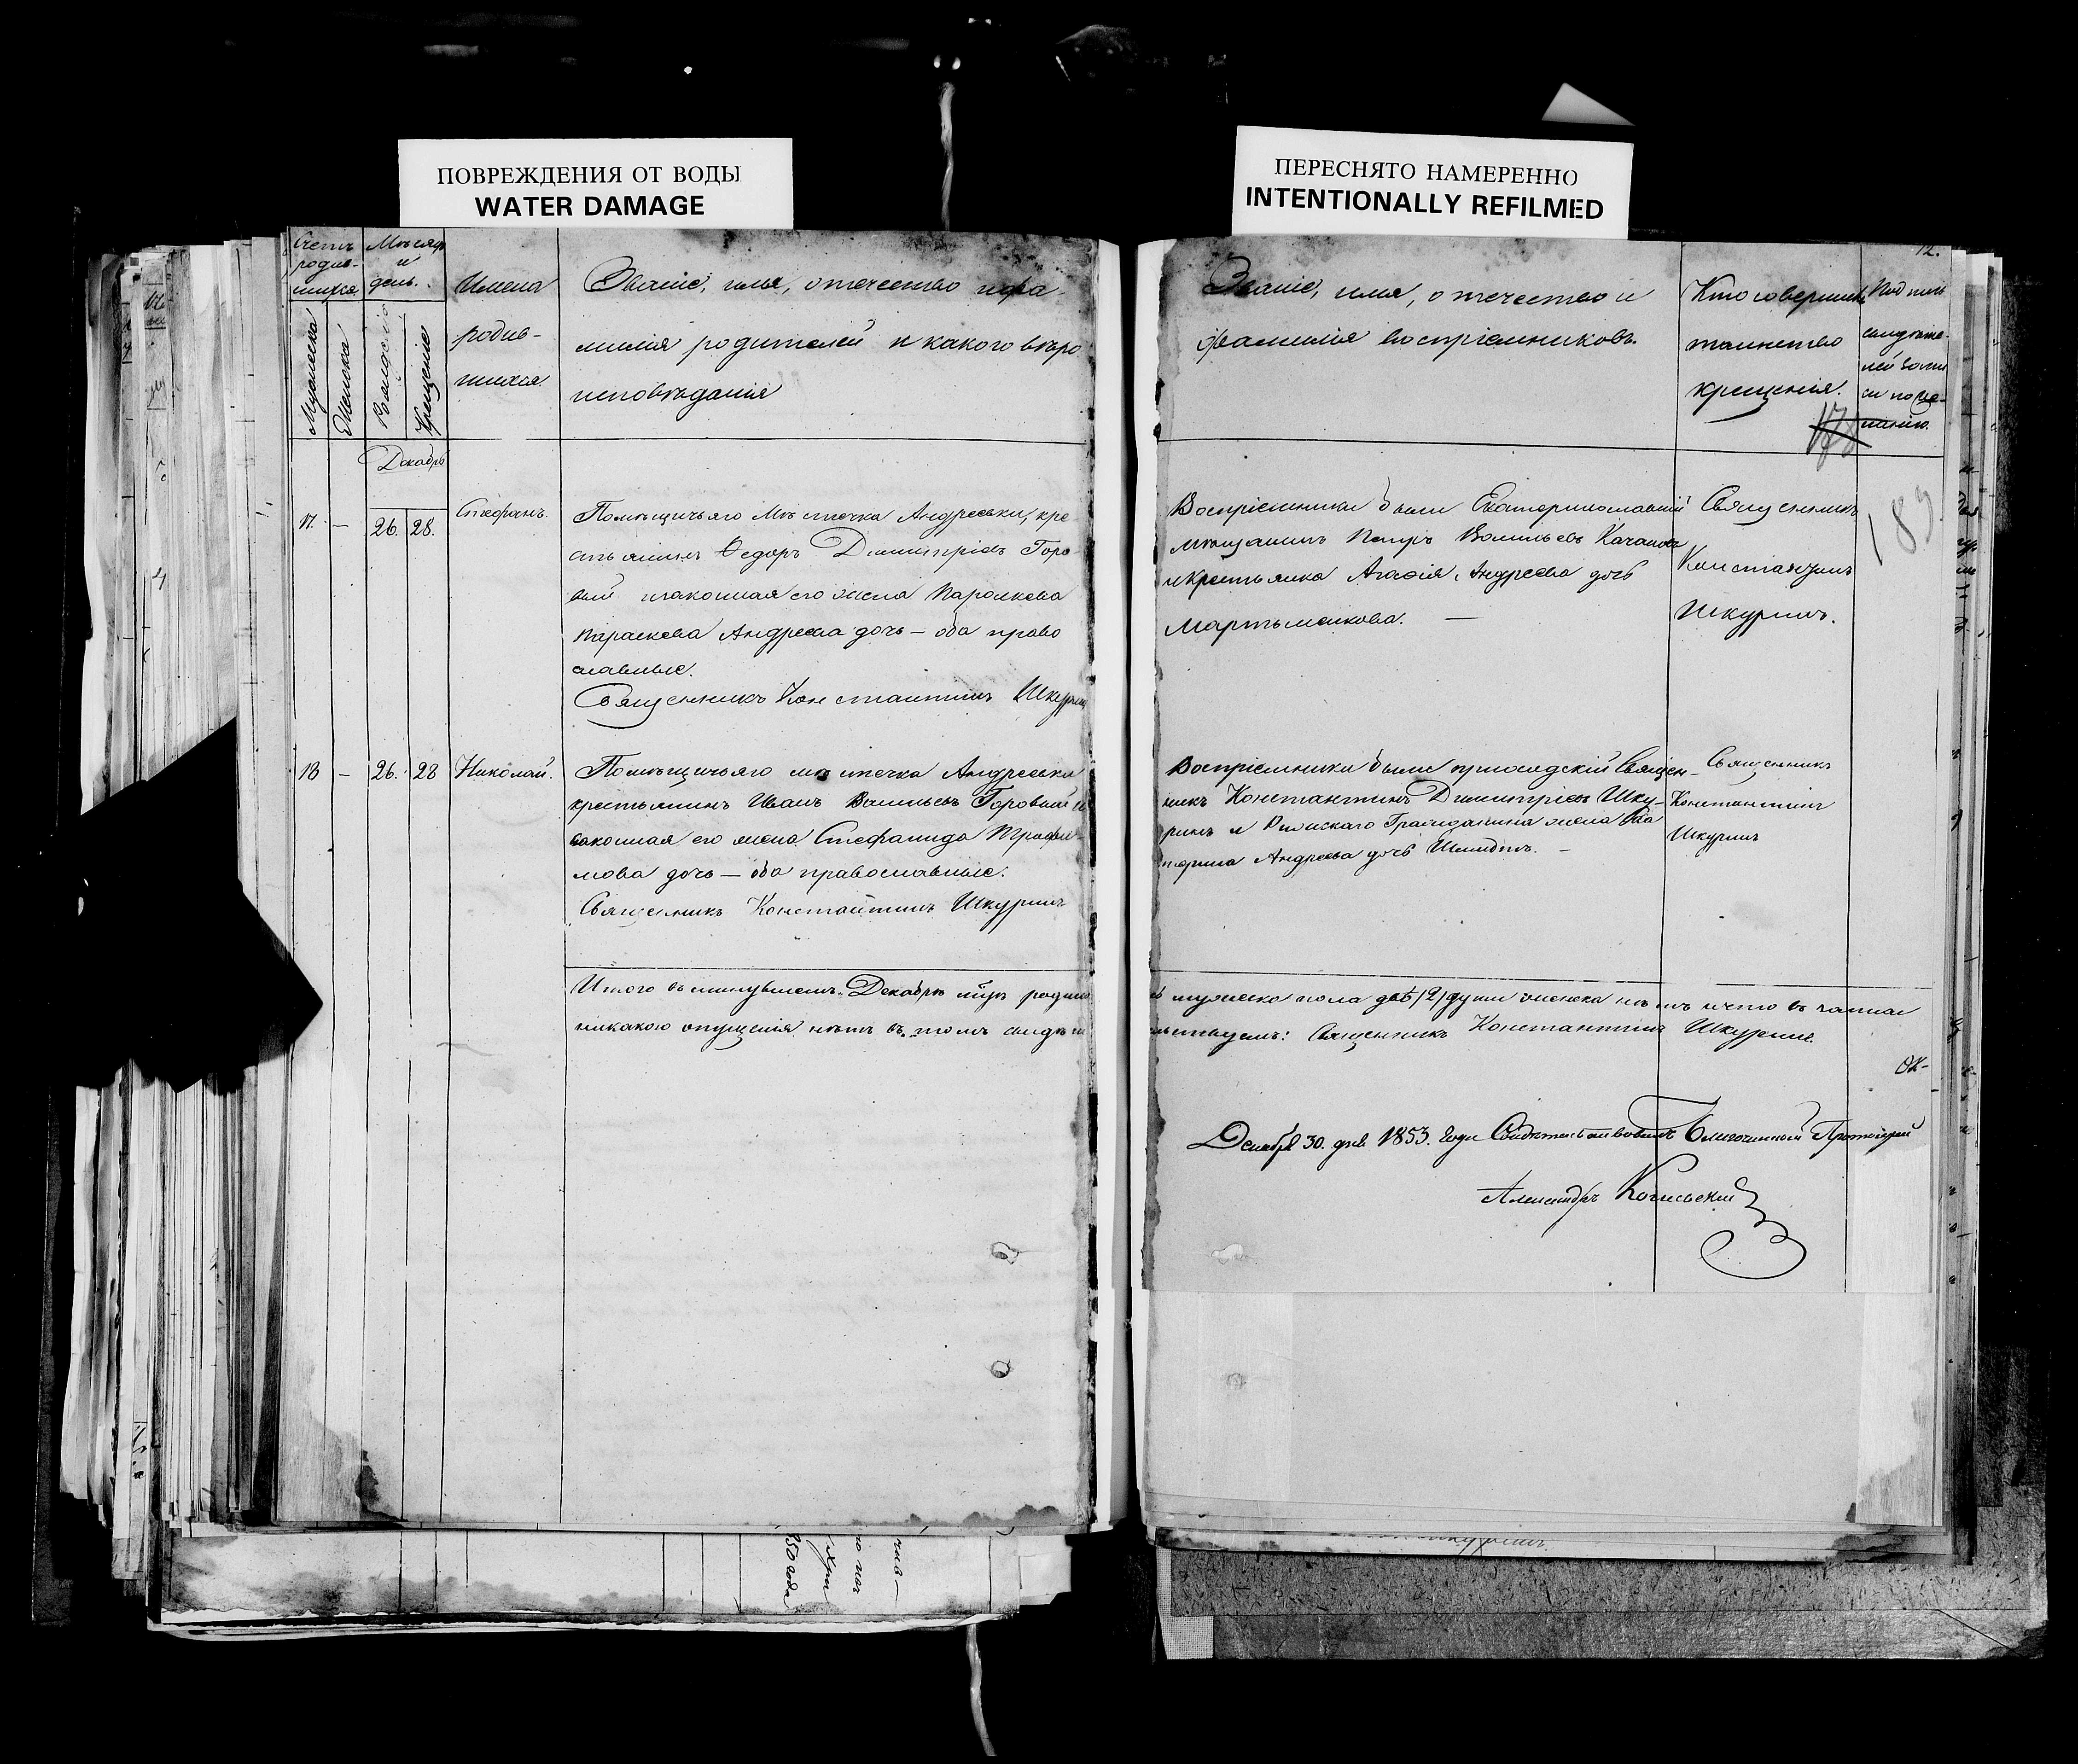 ПОВРЕЖДЕНИЯ ОТ ВОДЫ
WATER DAMAGE
ПЕРЕСНЯТО НАМЕРЕННО
INTENTIONALLY REFILMED
Счетъ родив-шихся.
Мужеска
Женска
Мѣсяцъ и день.
Рожденіе
Крещеніе
Имена
родив-
шихся.
Званіе, имя, отечество и фа-
милія родителей и какого вѣро
исповѣданія
Декабрь
17. — 26. 28. Стефанъ.
Помѣщичьяго Мѣстечка Андреевки, кре
стьянинъ Ѳедоръ Димитріевъ Горо
вый и законная его жена
Параскева Андреева дочь — оба право
славные.
Священникъ Константинъ Шкуринъ
18 — 26. 28 Николай.
Помѣщичьяго мѣстечка Андреевки
крестьянинъ Иванъ Васильевъ Горовый и
законная его жена Стефанида Трофи-
мова дочь — оба православные.
Священникъ Константинъ Шкуринъ
Итого въ минувшемъ Декабрѣ мцѣ родило
никакого опущенія нѣтъ въ томъ свидѣт
12.
Званіе, имя, отечество и
фамилія воспріемниковъ.
Кто совершилъ
таинство
крещенія.
свидѣте-
лей запи
си по же-
ланію.
189
Воспріемники были Екатеринославскій
мѣщанинъ Петръ Васильевъ
и крестьянка Агафія Андреева дочь
Мартыненкова. —
Священникъ
Константинъ
Шкуринъ.
Воспріемники были приходскій Священ-
никъ Константинъ Димитріевъ Шку-
ринъ и Гражданина жена Ека
терина Андреева дочь —
Священникъ
Константинъ
Шкуринъ
мужеска пола двѣ /2/ души женска нѣтъ и что въ записи
льствуемъ: Священникъ Константинъ Шкуринъ.
Декабря 30. дня 1853. года Свидѣтельствовалъ Благочинный Протоіерей
Александръ